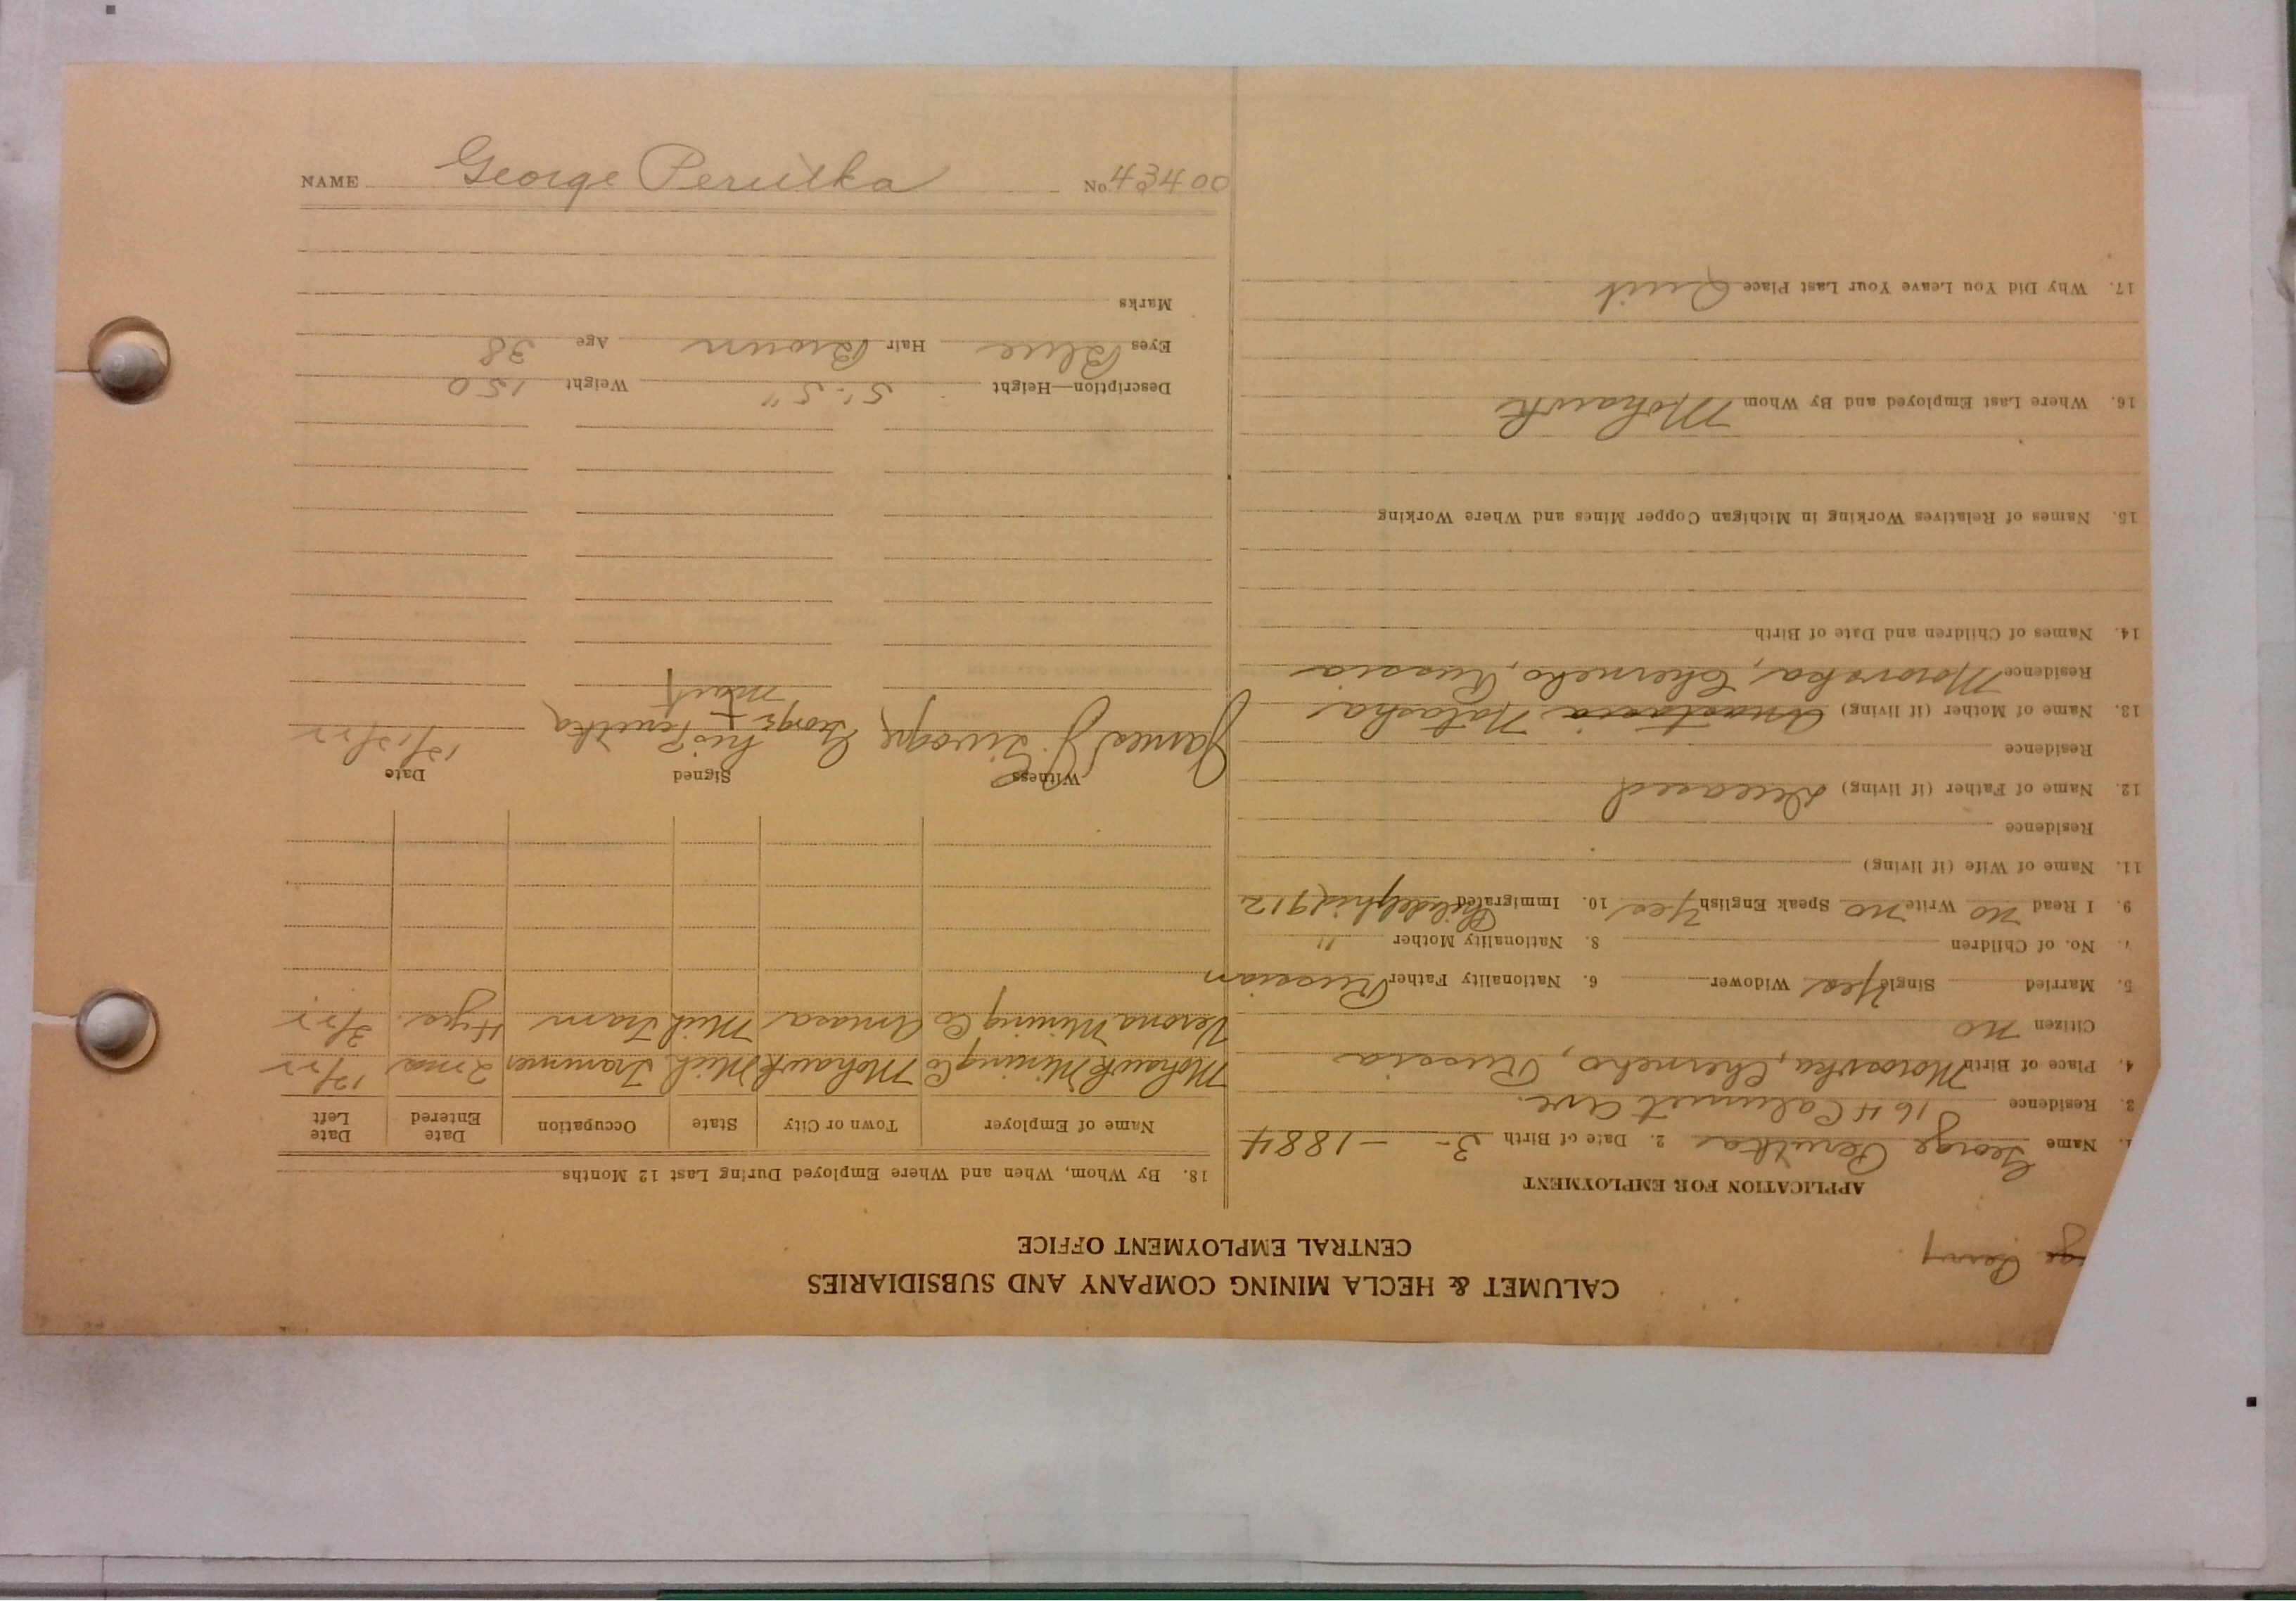 NAME George Perutka No. 43400
CALUMET & HECLA MINING COMPANY AND SUBSIDIARIES
CENTRAL EMPLOYMENT OFFICE
ge Perry
APPLICATION FOR EMPLOYMENT
1. Name George Perutka 2. Date of Birth 3- - 1884
3. Residence 5164 Calumet Ave.
4. Place of Birth Morovka, Cherneho, Russia
Citizen no
5. Married Single Yes Widower 6. Nationality Father Russian
7. No. of Children 8. Nationality Mother "
9. I Read no Write no Speak English Yes 10. Immigrated Philidelphia 1912
11. Name of Wife (if living)
Residence
12. Name of Father (if living) Deceased
Residence
13. Name of Mother (if living) Anastacia Natasha
Residence Morovska, Cherneho, Russia
14. Names of Children and Date of Birth
15. Names of Relatives Working in Michigan Copper Mines and Where Working
16. Where Last Employed and By Whom Mohawk
17. Why Did You Leave Your Last Place Quit
18. By Whom, When and Where Employed During Last 12 Months
Name of Employer Town or City State Occupation Date Entered Date Left
Mohawk Mining Co Mohawk Mich Trammer 2 mos 12/22
Verona Mining Co Amasa Mich Tram 4 yrs. 3/22
Witness Signed Date
James J. George his Perutka 12/12/22
+
mark
Description—Height 5'-5" Weight 150
Eyes Blue Hair Brown Age 38
Marks